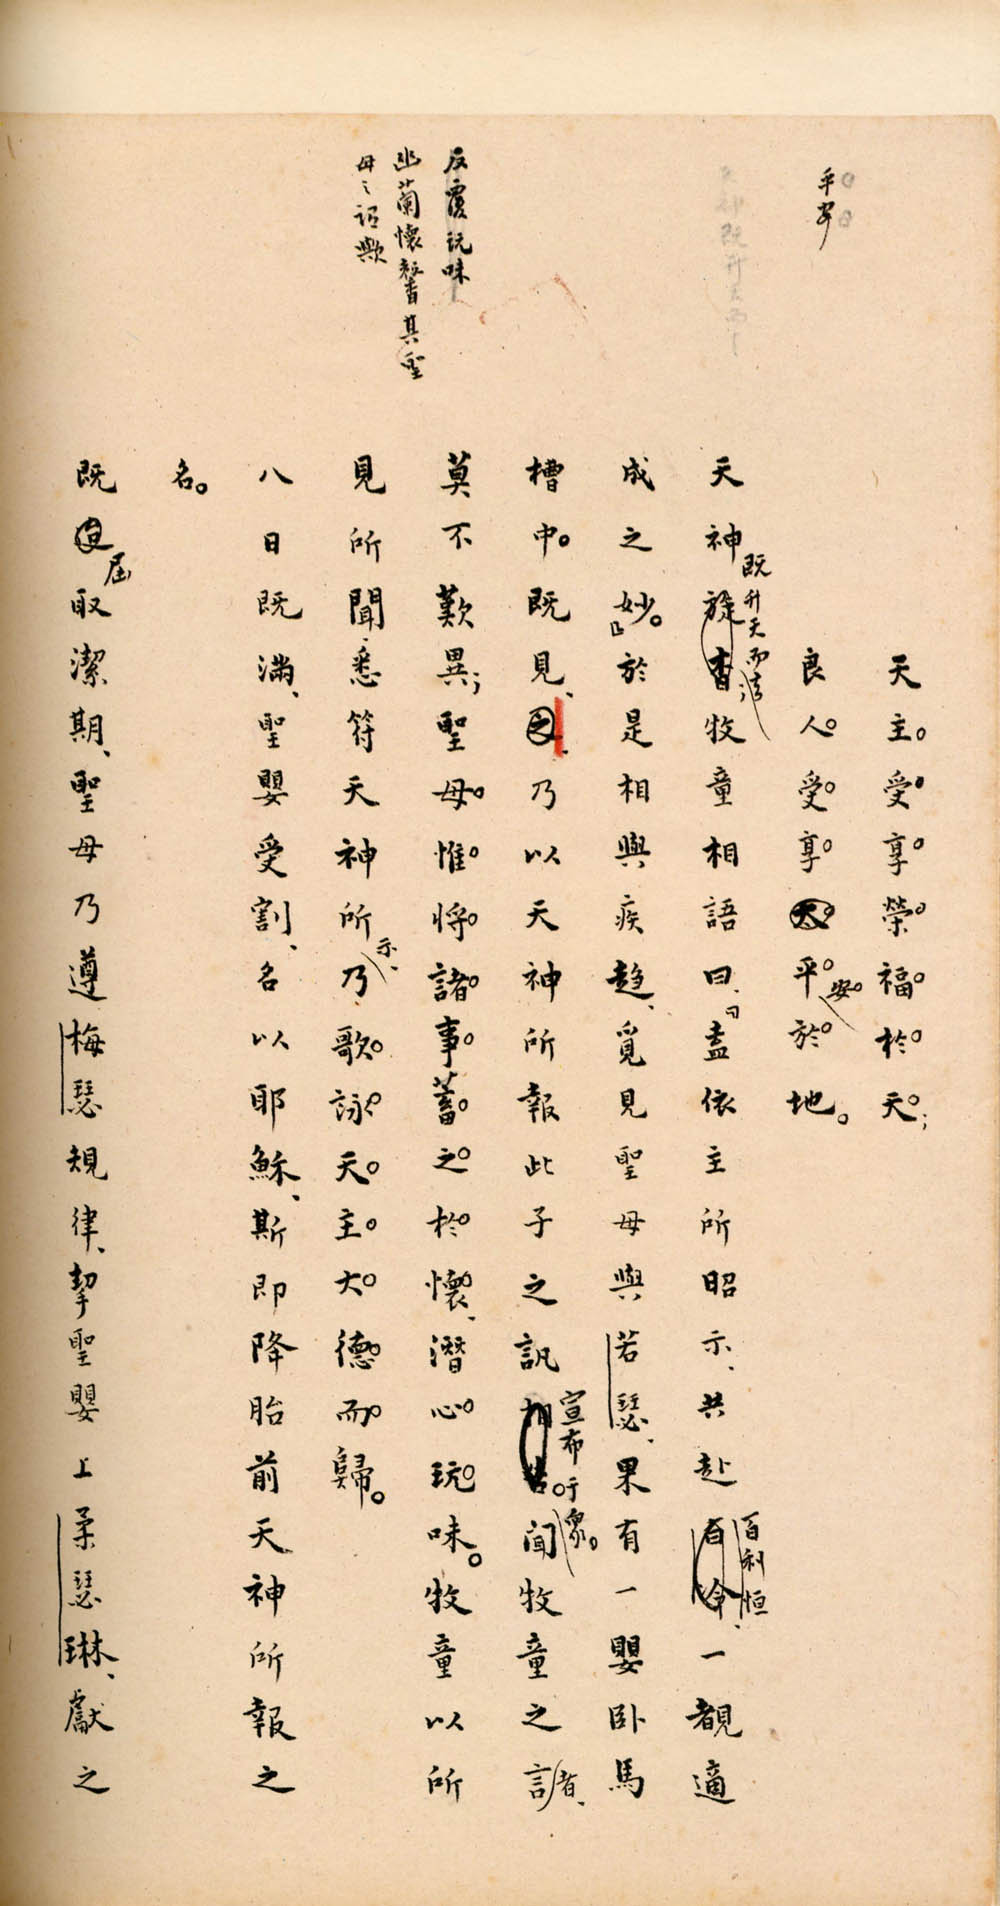 平安
天主受享榮福於天；
良人受享太平安於地。
天神旋杳牧童相語曰、「盍依主所昭示、共赴百冷、一覩適
既升天而杳；
百利恒
成之妙。」於是相與疾趨、覓見聖母與若瑟、果有一嬰臥馬
反覆玩味
幽蘭懷馨其聖
母之謂歟
槽中。既見、之、乃以天神所報此子之訊相告。聞牧童之言者、
宣布于眾。
莫不歎異；聖母惟將諸事蓄之於懷、潛心玩味。牧童以所
見所聞悉符天神所示、乃歌詠天主大德而歸。
八日既滿、聖嬰受割、名以耶穌、斯即降胎前天神所報之
名。
既屆取潔期、聖母乃遵梅瑟規律、挈聖嬰上柔瑟琳、獻之